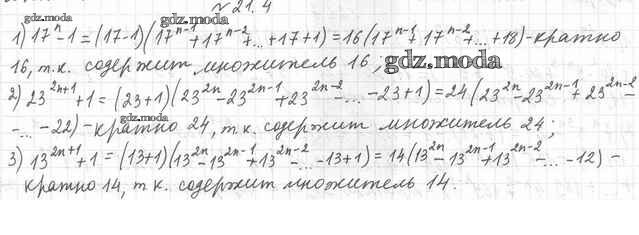 № 21.4
gdz.moda gdz.moda
1) 17ⁿ-1=(17-1)(17ⁿ⁻¹+17ⁿ⁻²+...+17+1)=16(17ⁿ⁻¹+17ⁿ⁻²+...+18)-кратно
16, т.к. содержит множитель 16; gdz.moda
2) 23²ⁿ⁺¹+1=(23+1)(23²ⁿ-23²ⁿ⁻¹+23²ⁿ⁻²-...-23+1)=24(23²ⁿ-23²ⁿ⁻¹+23²ⁿ⁻²-
gdz.moda
-...-22)-кратно 24, т.к. содержит множитель 24;
3) 13²ⁿ⁺¹+1=(13+1)(13²ⁿ-13²ⁿ⁻¹+13²ⁿ⁻²-...-13+1)=14(13²ⁿ-13²ⁿ⁻¹+13²ⁿ⁻²-...-12)-
кратно 14, т.к. содержит множитель 14.